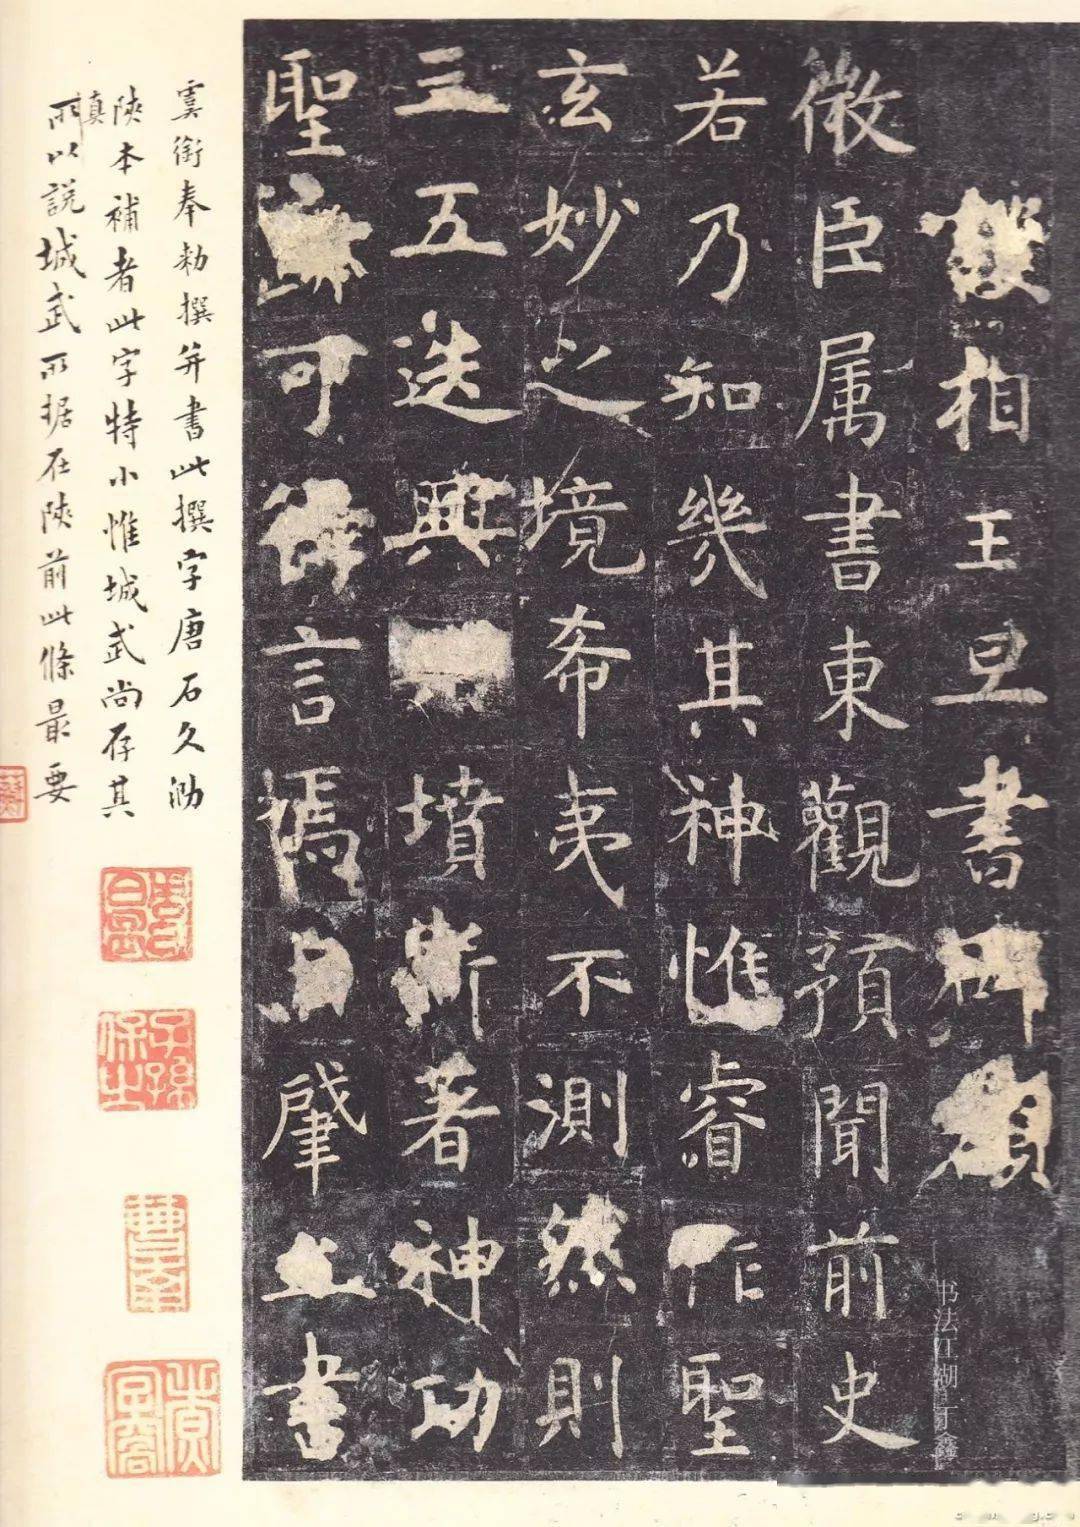 相王旦書碑額
微臣属書東觀預聞前史
若乃知幾其神惟睿作聖
玄妙之境希夷不測然則
三五迭興墳斯著神功
聖迹可得言焉自肇立書
虞銜奉勑撰并書此撰字唐石久泐
陝本補者此字特小惟城武尚存其
真
所以說城武所据在陝前此條最要
子孫保之
书法江湖 于鑫